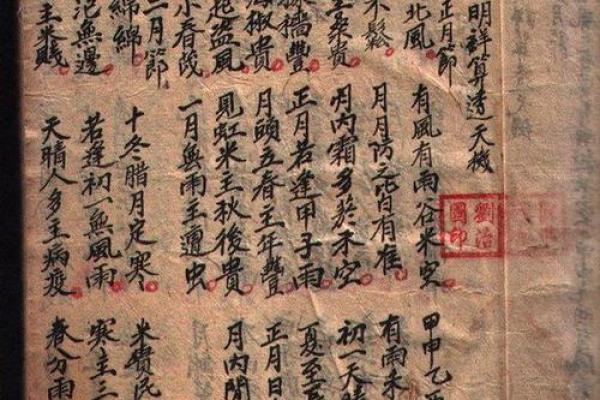 明詳算透天機
正月節
北風
不鬆
桑貴
穡豐
椒貴
盗風
小春茂
二月節
綿綿
記無邊
主米賤
有風有雨谷米空
月月防之皆有准
内霜多於未空
正月若逢甲子雨
月頭立春主年豐
見虹米主秋後貴
一月無雨主遭虫
十冬腊月定寒
若逢初一無風雨
天晴人多主病疫
甲申乙
有雨未
初一天晴
夏至
正月日
月内閏
米貴民
寒主三
春分雨
劉治
國印